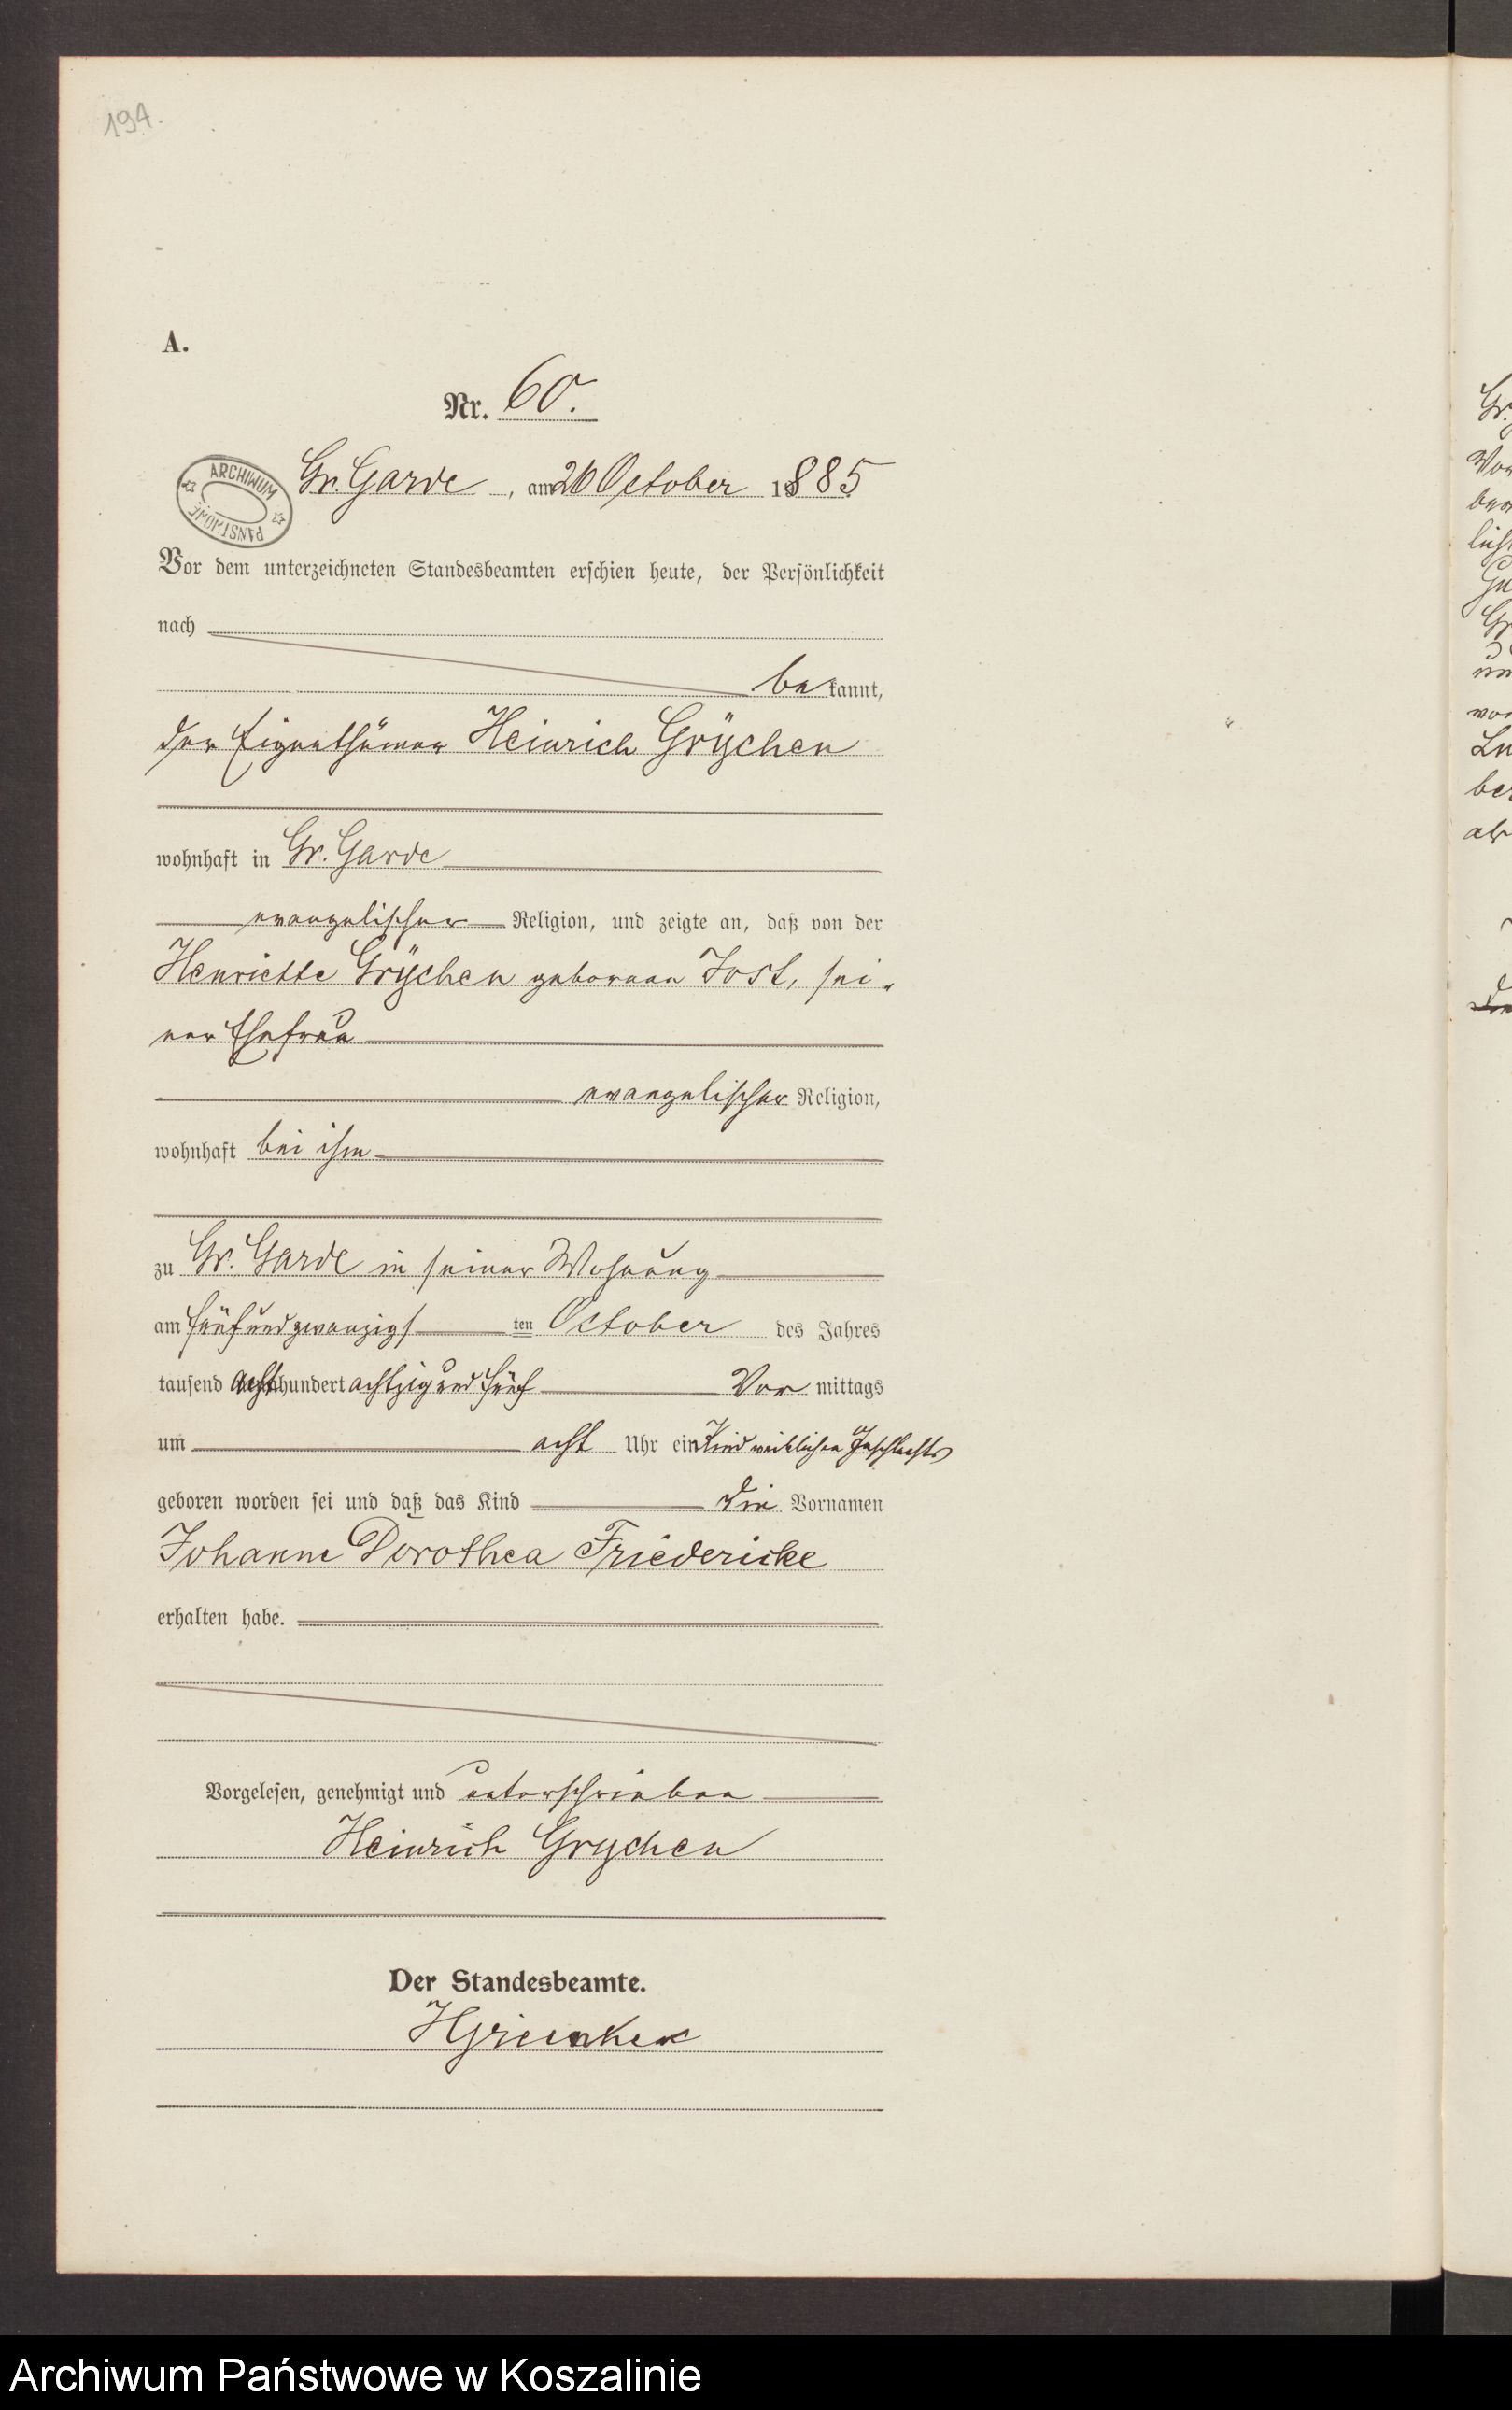 194.
A.
Nr. 60.
Gr. Garde, am 26 October 1885
ARCHIWUM
PAŃSTWOWE
Vor dem unterzeichneten Standesbeamten erschien heute, der Persönlichkeit
nach
bekannt,
der Eigenthümer Heinrich Grÿchen
wohnhaft in Gr. Garde
evangelischer Religion, und zeigte an, daß von der
Henriette Grÿchen geborenen Jost, sei-
ner Ehefrau
evangelischer Religion,
wohnhaft bei ihm
zu Gr. Garde in seiner Wohnung
am fünfundzwanzigsten October des Jahres
tausend achthundert achtzig und fünf Vormittags
um acht Uhr ein Kind weiblichen Geschlechts
geboren worden sei und daß das Kind die Vornamen
Johanne Dorothea Friedericke
erhalten habe.
Vorgelesen, genehmigt und unterschrieben
Heinrich Grychen
Der Standesbeamte.
Archiwum Państwowe w Koszalinie